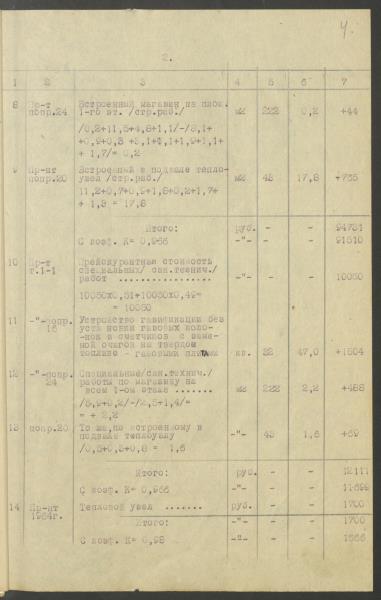 4.
2.
1 2 3 4 5 6 7
8 Пр-т Встроенный магазин на площ.
попр.24 1-го эт. /стр.раб./ м2 222 0,2 +44
/0,2+11,5+4,8+1,1/-/8,1+
+ 1,7/= 0,2
9 Пр-нт Встроенный в подвале тепло-
попр.20 узел /стр.раб./ м2 43 17,8 +765
11,2+0,7+0,9+1,8+0,2+1,7+
+ 1,3 = 17,8
Итого: руб. - - 94731
С коэф. К= 0,966 -"- - - 91510
10 Пр-т Прейскурантная стоимость
т.1-1 специальных/ сан.технич./
работ -"- - - 10050
10050х0,51+10050х0,49=
10050
11 -"-попр. Устройство газификации без
16 установки газовых коло-
-нок и счетчиков с заме-
ной очагов на твердом
топливе - газовыми плитА кв. 32 47,0 +1504
12 -"-попр. Специальные/сан.технич./
24 работы по магазину на
всем 1-ом этаже ....... м2 222 2,2 +488
/5,9+0,2/-/2,5+1,4/=
= + 2,2
13 попр.20 То же, по встроенному в
подвале теплоузлу -"- 43 1,6 +69
/0,5+0,3+0,8 = 1,6
Итого: руб. - - 12111
С коэф. К= 0,966 -"- - - 11699
14 Пр-нт Тепловой узел ....... руб. - - 1700
1964г.
Итого: -"- - - 1700
С коэф. К= 0,98 -"- - - 1666